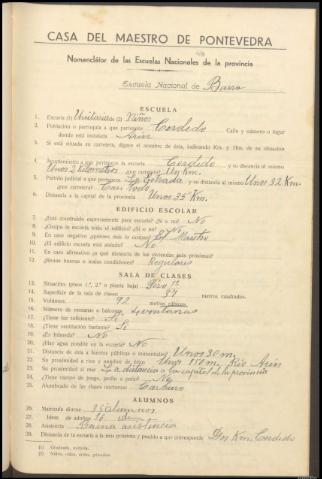 CASA DEL MAESTRO DE PONTEVEDRA
Nomenclátor de las Escuelas Nacionales de la provincia
Escuela Nacional de Barro
ESCUELA
1. Escuela (1) Unitaria (2) Niños
2. Población o parroquia a que pertenece Cerdedo Calle y número o lugar
donde está instalada
3. Si está situada en carretera, dígase el nombre de ésta, indicando Km. y Hm. de su situación
4. Ayuntamiento a que pertenece la escuela Cerdedo y su distancia al mismo
Unos 2 kilómetros por camino Un Km.
5. Partido judicial a que pertenece La Estrada y su distancia al mismo Unos 32 Km.
por carretera Casi todo
6. Distancia a la capital de la provincia Unos 35 Km.
EDIFICIO ESCOLAR
7. ¿Está construído expresamente para Escuela? Sí o no? No
8. ¿Ocupa la escuela todo el edificio? Sí o no? No
9. En caso negativo ¿quiénes más lo ocupan? El Maestro
10. ¿El edificio escuela está aislado? No
11. En caso afirmativo ¿a qué distancia de las viviendas más próximas?
12. ¿Reune buenas o malas condiciones? Regulares
SALA DE CLASES
13. Situación (piso 1.º, 2.º o planta baja) Piso 1º
14. Superficie de la sala de clases 34 metros cuadrados.
15. Volúmen 92 metros cúbicos.
16. Número de ventanas o balcones 4 ventanas
17. ¿Tiene luz suficiente? Sí
18. ¿Tiene ventilación bastante? Sí
19. ¿Es húmeda? No
20. ¿Hay agua potable en la escuela? No
21. Distancia de ésta a fuentes públicas o manantiales Unos 30 m.
22. Su proximidad a ríos o arroyos de riego Unos 150 m. Río
23. Su proximidad al mar La distancia a la capital de la provincia
24. ¿Tiene campo de juego, jardín o patio? No
25. Alumbrado de las clases nocturnas Carburo
ALUMNOS
26. Matrícula diurna 35 alumnos
27. Idem de adultos
28. Asistencia Buena asistencia
29. Distancia de la escuela a la más próxima y pueblo a que corresponde Dos Km. Cerdedo
(1) Graduada, unitaria.
(2) Niños, niñas, mixta, párvulos.